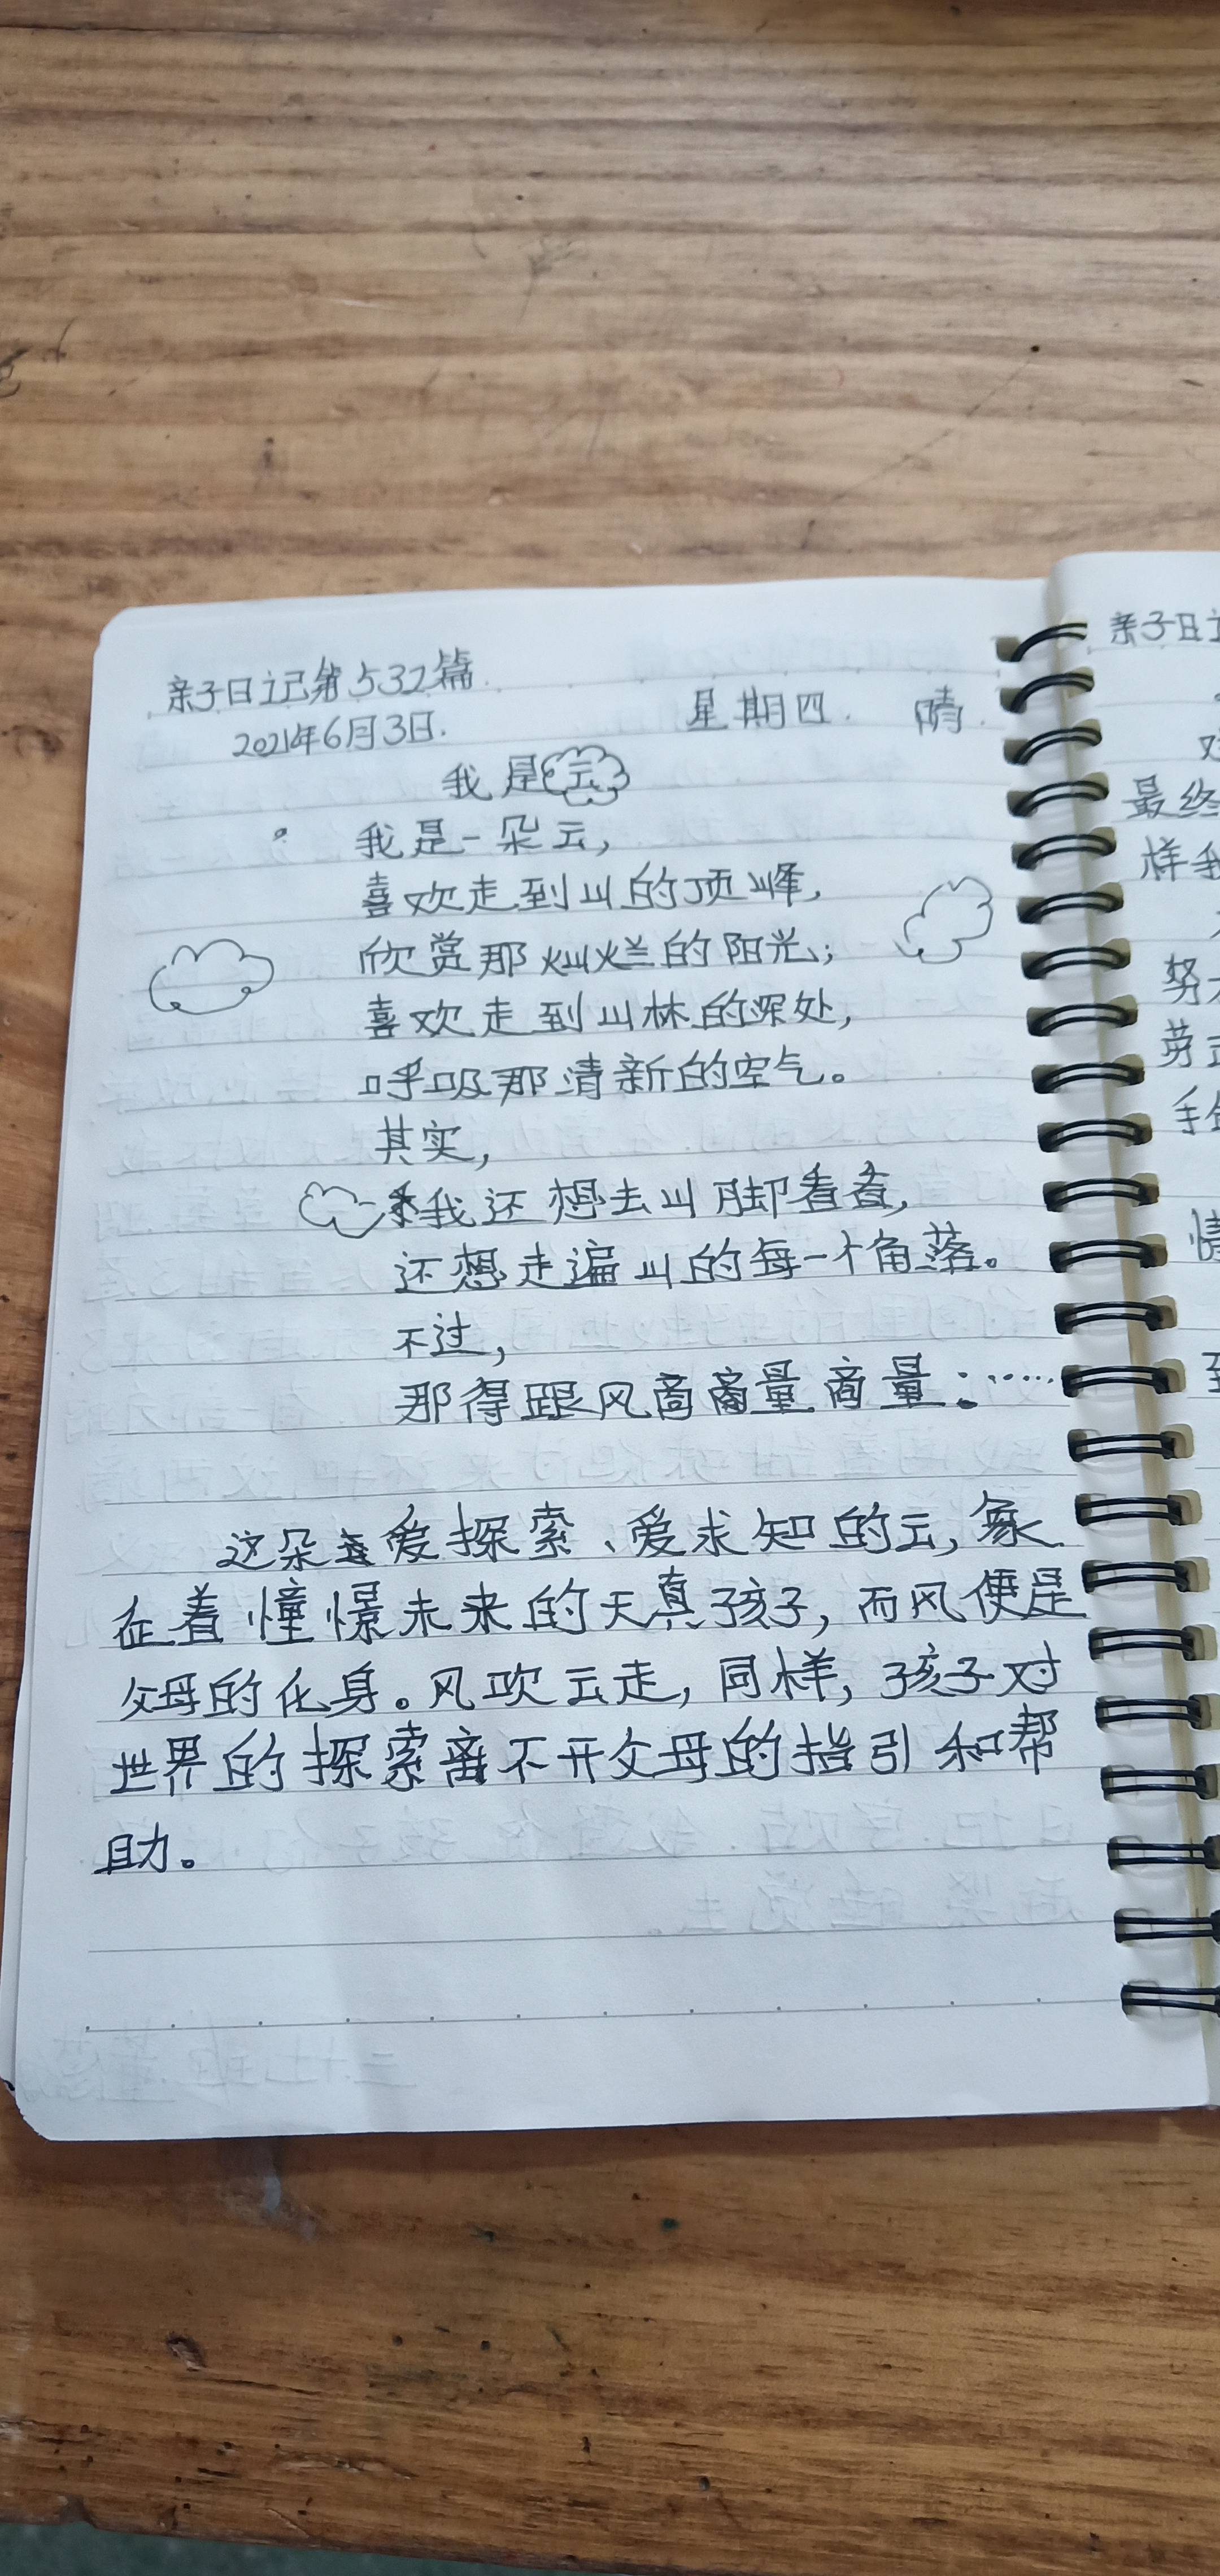 亲子日记第532篇
2021年6月3日. 星期四. 晴.
我是云
我是一朵云,
喜欢走到山的顶峰,
欣赏那灿烂的阳光;
喜欢走到山林的深处,
呼吸那清新的空气。
其实,
我还想去山脚看看,
还想走遍山的每一个角落。
不过,
那得跟风商商量商量:……
这朵爱探索、爱求知的云,象
征着憧憬未来的天真孩子,而风便是
父母的化身。风吹云走,同样,孩子对
世界的探索离不开父母的指引和帮
助。
亲子日
最终
样我
努
劳
手
情
到